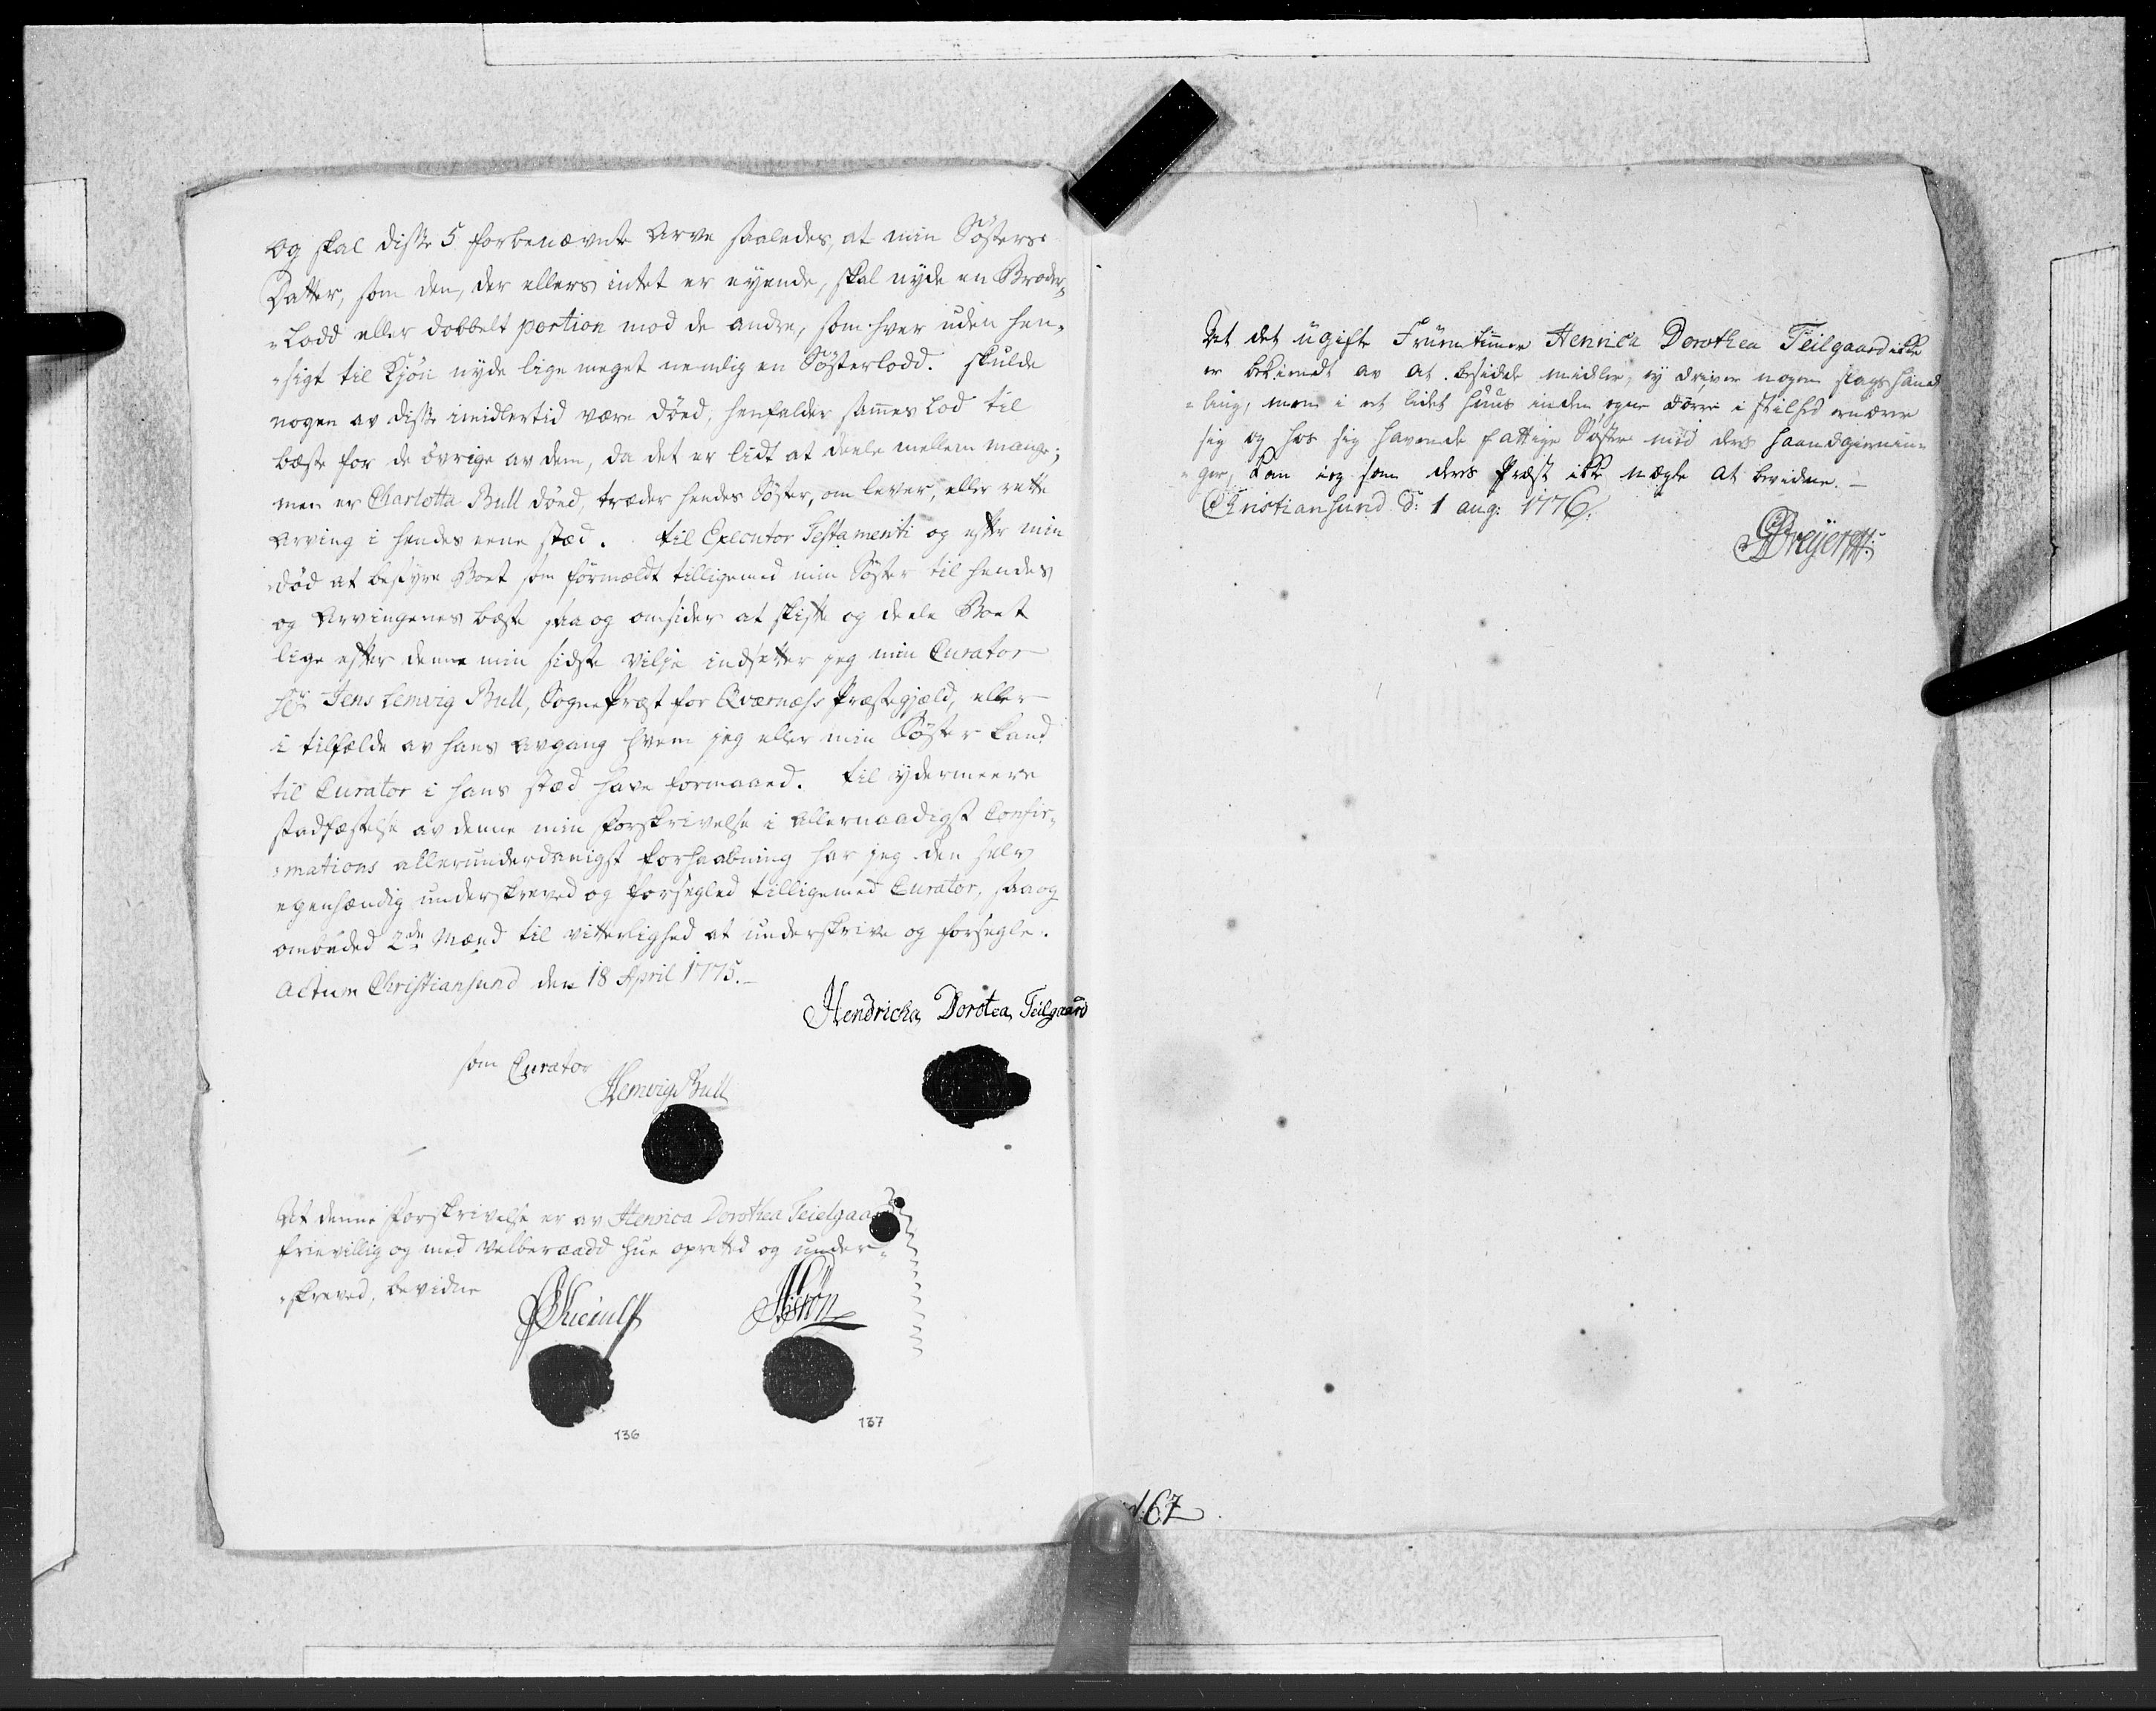 og skal disse 5 forbenævnte arve saaledes, at min Søsters
Datter, som den, der ellers intet er eyende, skal nyde en Broder
„Lodd eller dobbelt portion mod de andre, som hver uden hen„
„sigt til Kjøn nyde lige meget nemlig en Søsterlodd. skulde
nogen av disse imidlertid være døed, henfalder sammes Lod til
bæste for de øvrige av dem, da det er lidt at deele mellem mange;
men er Charlotta Bull døed, træder hendes Søster, om lever, eller rette
Arving i hendes eene stæd. til Executor Testamenti og efter min
død at bestyre Boet som førmældt tilligemed min Søster til hendes
og Arvingenes bæste saa og omsider at skifte og deele Boet
lige efter denne min sidste vilje indsetter jeg min Curator
Hr Jens Lemvig Bull, SognePræst for Qværnæs Præstegjæld, eller
i tilfælde av hans avgang hvem jeg eller min Søster kand
til Curator i hans stæd have formaaed. til ydermeere
stadfæstelse av denne min forskrivelse i allernaadigst Confir„
„mations allerunderdanigst forhaabning har jeg den selv
egenhændig underskreved og forsegled tilligemed Curator, saa og
ombeded 2de Mænd til vitterlighed at underskrive og forsegle.
Actum Christiansund den 18 April 1775.
Hendricka Dorotea Teilgaard
som Curator
JLemvig Bull
At denne forskrivelse er av Henrica Dorothea Teielgaard
frievillig og med velberaadd hue opretted og under„
„skreved, bevidne
136
137
At det ugifte Fruentimmer Henrica Dorothea Teilgaard ikke
er bekiendt av at besidde midler, ey driver nogen slags hand
„ling, men i et lidet huus inden egne dørre i stilhed ernærer
sig og hos sig havende fattige Søster med ders haandgiernin„
„ger, kan ieg som ders Præst ikke nægte at bevidne.
Christiansund d: 1 aug: 1776.
Dreyer
167